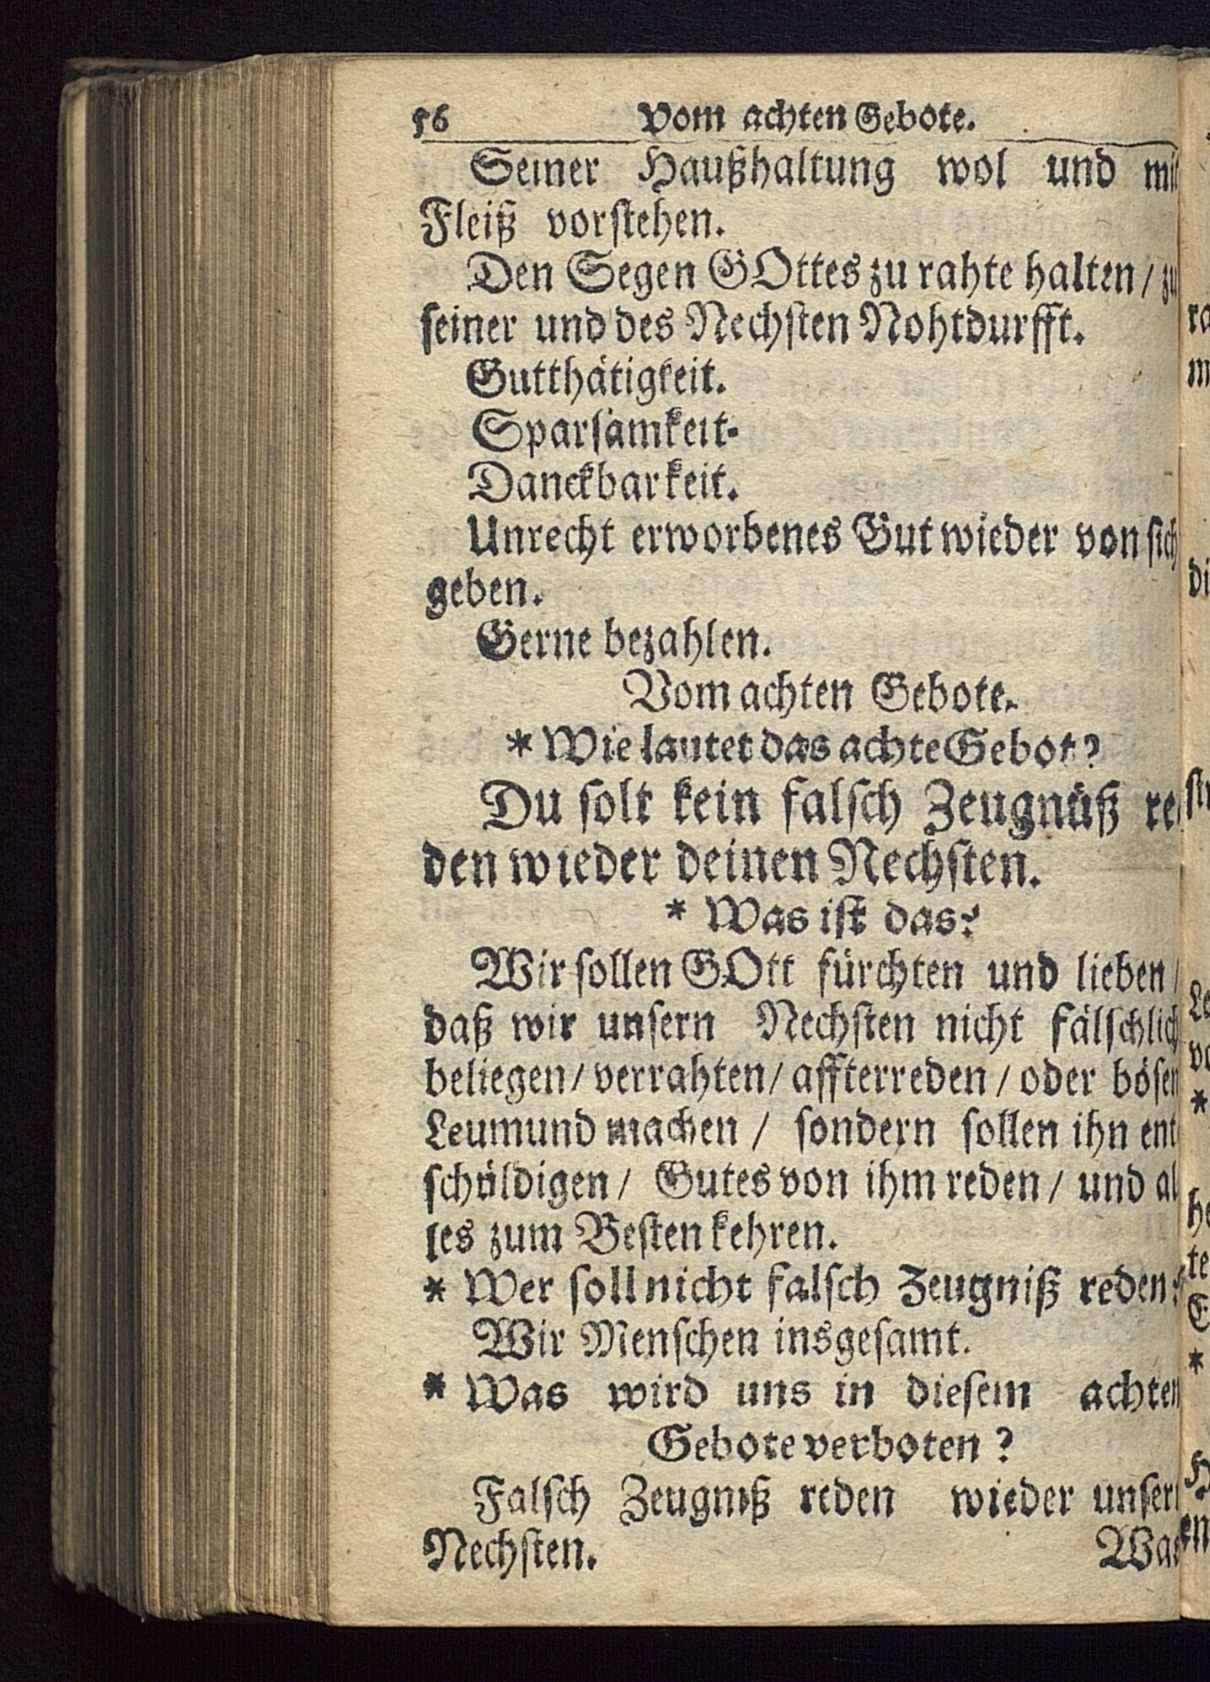 56 Vom achten Gebote.
Seiner Haußhaltung wol und mit
Fleiß vorstehen.
Den Segen GOttes zu rahte halten / zu
seiner und des Nechsten Nohtdurfft.
Gutthätigkeit.
Sparsamkeit.
Danckbarkeit.
Unrecht erworbenes Gut wieder von sich
geben.
Gerne bezahlen.
Vom achten Gebote.
* Wie lautet das achte Gebot?
Du solt kein falsch Zeugnüß re-
den wieder deinen Nechsten.
* Was ist das?
Wir sollen GOtt fürchten und lieben /
daß wir unsern Nechsten nicht fälschlich
beliegen / verrahten / affterreden / oder bösen
Leumund machen / sondern sollen ihn ent-
schüldigen / Gutes von ihm reden / und al-
les zum Besten kehren.
* Wer soll nicht falsch Zeugniß reden?
Wir Menschen insgesamt.
* Was wird uns in diesem achten
Gebote verboten?
Falsch Zeugniß reden wieder unsern
Nechsten. Was